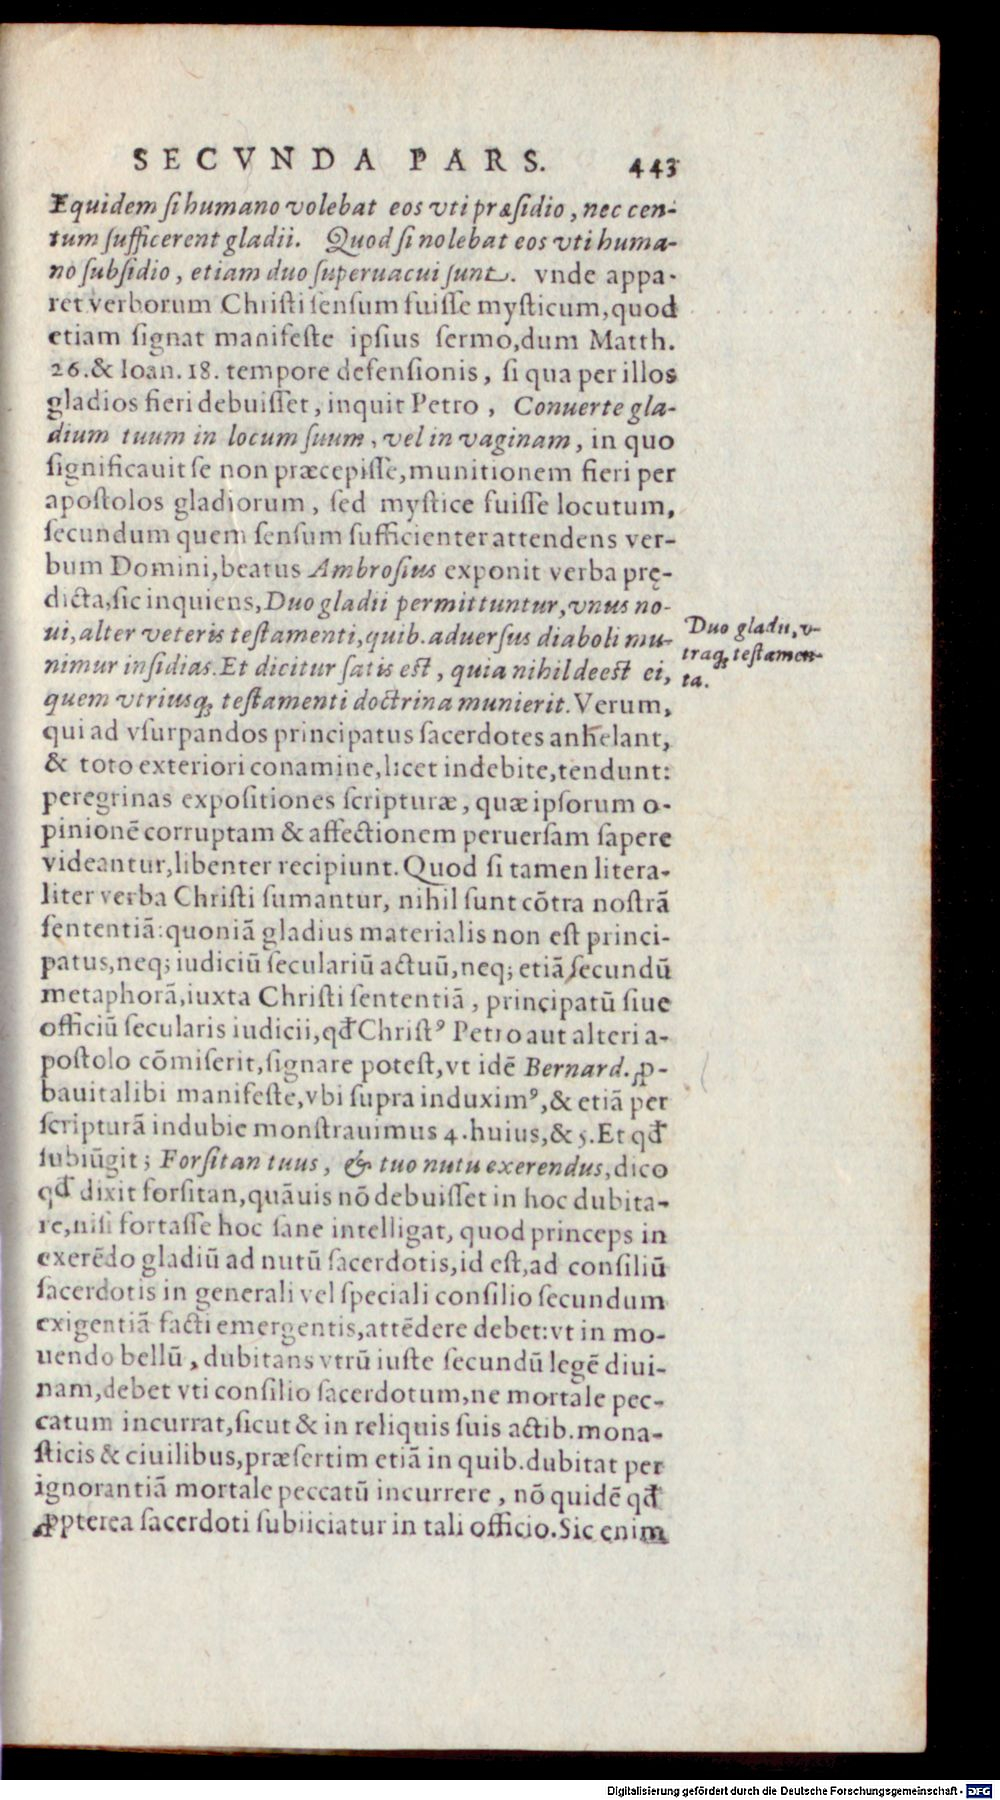 SECVNDA PARS. 443
Equidem ſi humano volebat eos vti præſidio, nec cen-
tum ſufficerent gladii. Quod ſi nolebat eos vti huma-
no ſubſidio, etiam duo ſuperuacui ſunt. vnde appa-
ret verborum Chriſti ſenſum fuiſſe myſticum, quod
etiam ſignat manifeſte ipſius ſermo, dum Matth.
26. & Ioan. 18. tempore defenſionis, ſi qua per illos
gladios fieri debuiſſet, inquit Petro, Conuerte gla-
dium tuum in locum ſuum, vel in vaginam, in quo
ſignificauit ſe non præcepiſſe, munitionem fieri per
apoſtolos gladiorum, ſed myſtice fuiſſe locutum,
ſecundum quem ſenſum ſufficienter attendens ver-
bum Domini, beatus Ambroſius exponit verba prę-
dicta, ſic inquiens, Duo gladii permittuntur, vnus no-
ui, alter veteris teſtamenti, quib. aduerſus diaboli mu-
nimur inſidias. Et dicitur ſatis eſt, quia nihil deeſt ei,
quem vtriusq; teſtamenti doctrina munierit. Verum,
Duo gladii, v-
traq; teſtamen-
ta.
qui ad vſurpandos principatus ſacerdotes anhelant,
& toto exteriori conamine, licet indebite, tendunt:
peregrinas expoſitiones ſcripturæ, quæ ipſorum o-
pinionē corruptam & affectionem peruerſam ſapere
videantur, libenter recipiunt. Quod ſi tamen litera-
liter verba Chriſti ſumantur, nihil ſunt cōtra noſtrā
ſententiā: quoniā gladius materialis non eſt princi-
patus, neq; iudiciū ſeculariū actuū, neq; etiā ſecundū
metaphorā, iuxta Chriſti ſententiā, principatū ſiue
officiū ſecularis iudicii, qđ Chriſtꝰ Petro aut alteri a-
poſtolo cōmiſerit, ſignare poteſt, vt idē Bernard. ꝓ-
bauit alibi manifeſte, vbi ſupra induximꝰ, & etiā per
ſcripturā indubie monſtrauimus 4. huius, & 5. Et qđ
ſubiūgit; Forſitan tuus, & tuo nutu exerendus, dico
qđ dixit forſitan, quāuis nō debuiſſet in hoc dubita-
re, niſi fortaſſe hoc ſane intelligat, quod princeps in
exerēdo gladiū ad nutū ſacerdotis, id eſt, ad conſiliū
ſacerdotis in generali vel ſpeciali conſilio ſecundum
exigentiā facti emergentis, attēdere debet: vt in mo-
uendo bellū, dubitans vtrū iuſte ſecundū legē diui-
nam, debet vti conſilio ſacerdotum, ne mortale pec-
catum incurrat, ſicut & in reliquis ſuis actib. mona-
ſticis & ciuilibus, præſertim etiā in quib. dubitat per
ignorantiā mortale peccatū incurrere, nō quidē qđ
ꝓpterea ſacerdoti ſubiiciatur in tali officio. Sic enim
Digitalisierung gefördert durch die Deutsche Forschungsgemeinschaft - DFG